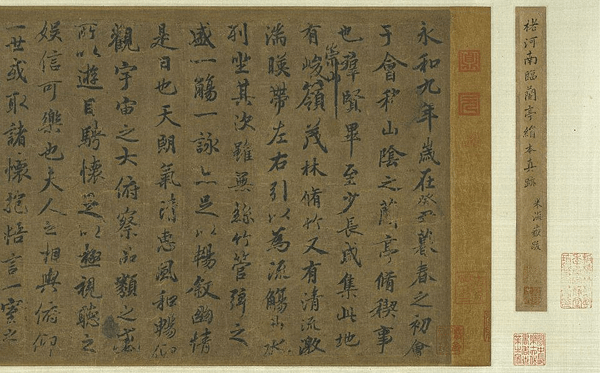 褚河南臨蘭亭絹本真跡 米海嶽跋
永和九年歲在癸丑暮春之初會
于會稽山陰之蘭亭脩稧事
也群賢畢至少長咸集此地
有崇山峻嶺茂林脩竹又有清流激
湍暎帶左右引以為流觴曲水
列坐其次雖無絲竹管弦之
盛一觴一詠亦足以暢敘幽情
是日也天朗氣清惠風和暢仰
觀宇宙之大俯察品類之盛
所以遊目騁懷足以極視聽之
娛信可樂也夫人之相與俯仰
一世或取諸懷抱悟言一室之